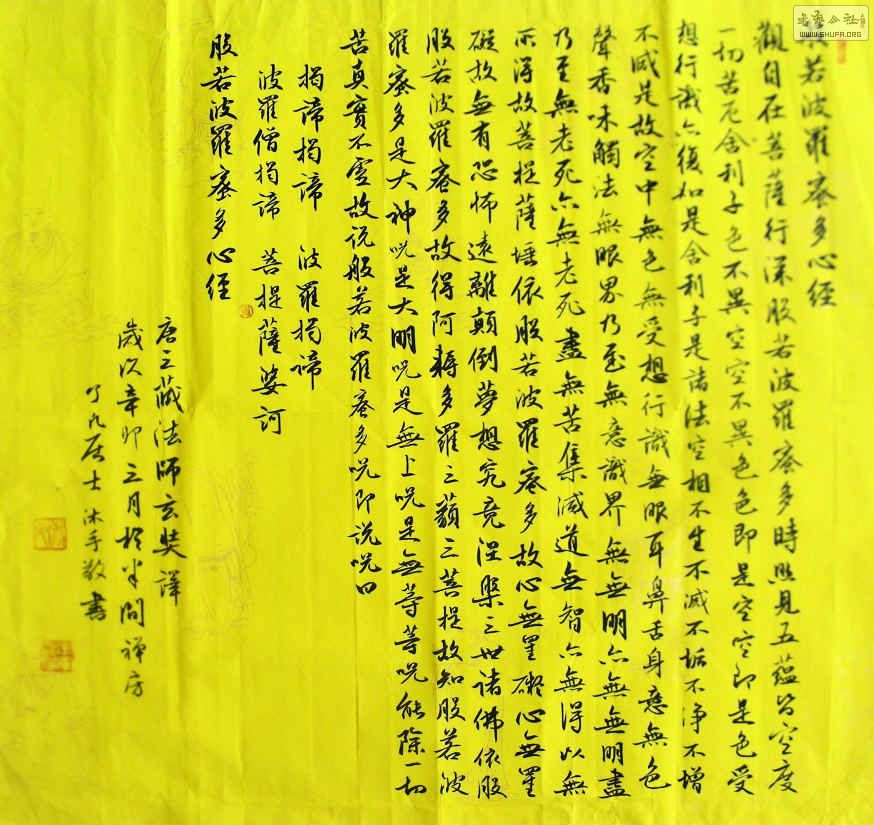 般若波羅蜜多心經
觀自在菩薩行深般若波羅蜜多時照見五蘊皆空度
一切苦厄舍利子色不異空空不異色色即是空空即是色受
想行識亦復如是舍利子是諸法空相不生不滅不垢不淨不增
不減是故空中無色無受想行識無眼耳鼻舌身意無色
聲香味觸法無眼界乃至無意識界無無明亦無無明盡
乃至無老死亦無老死盡無苦集滅道無智亦無得以無
所得故菩提薩埵依般若波羅蜜多故心無罣礙心無罣
礙故無有恐怖遠離顛倒夢想究竟涅槃三世諸佛依般
般若波羅蜜多故得阿耨多羅三藐三菩提故知般若波
羅蜜多是大神咒是大明咒是無上咒是無等等咒能除一切
苦真實不虛故說般若波羅蜜多咒即說咒曰
揭諦揭諦 波羅揭諦
波羅僧揭諦 菩提薩婆訶
般若波羅蜜多心經
唐三藏法師玄奘譯
歲次辛卯三月於半間禪房
了凡居士沐手敬書
書藝公社
WWW.SHUFA.ORG